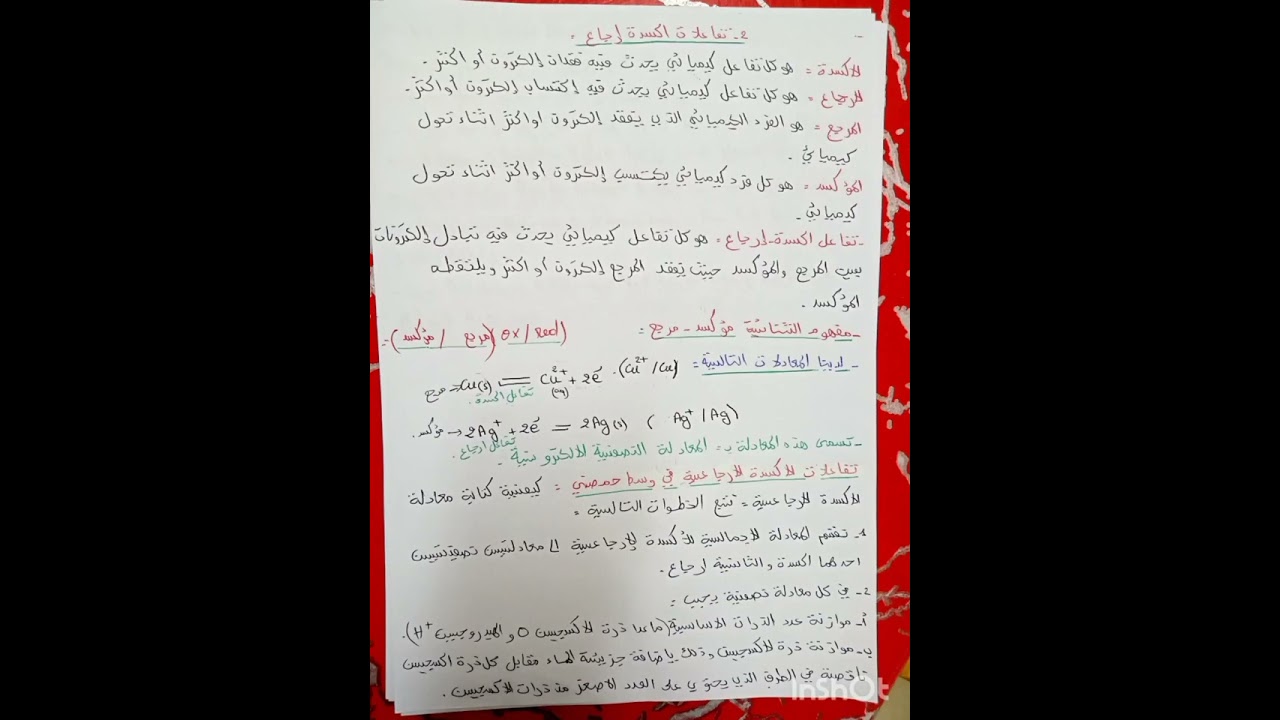 2- تفاعلات اكسدة إرجاع =
الاكسدة = هو كل تفاعل كيميائي يحدث فيه فقدان إلكترون أو أكثر.
الإرجاع = هو كل تفاعل كيميائي يحدث فيه إكتساب إلكترون أو أكثر.
المرجع = هو الفرد الكيميائي الذي يفقد إلكترون او أكثر اثناء تحول
كيميائي.
المؤكسد = هو كل فرد كيميائي يكتسب إلكترون أو أكثر اثناء تحول
كيميائي.
- تفاعل اكسدة-إرجاع = هو كل تفاعل كيميائي يحدث فيه تبادل إلكترونات
بين المرجع والمؤكسد حيث يفقد المرجع إلكترون أو اكثر ويلتقطه
المؤكسد.
- مفهوم الثنائية مؤكسد - مرجع = (ox/Red) (مرجع / مؤكسد) =
- لدينا المعادلات التالية =
مرجع ← Cu(s) = Cu²⁺(aq) + 2e⁻ . (Cu²⁺/Cu)
تفاعل اكسدة.
مؤكسد ← 2Ag⁺ + 2e⁻ = 2Ag(s) ( Ag⁺/Ag)
تفاعل ارجاع.
- تسمى هذه المعادلة بـ = المعادلة النصفية الالكترونية.
تفاعلات الاكسدة الارجاعية في وسط حمضي = كيفية كتابة معادلة
الاكسدة الارجاعية = نتبع الخطوات التالية =
1- تقسم المعادلة الاجمالية للأكسدة الإرجاعية الى معادلتين نصفيتين
احدهما اكسدة والثانية إرجاع.
2- في كل معادلة نصفية يجب =
أ- موازنة عدد الذرات الاساسية (ماعدا ذرة الاكسجين O والهيدروجين H⁺).
ب- موازنة ذرة الاكسجين وذلك بإضافة جزيئة الماء مقابل كل ذرة اكسجين
ناقصة في الطرف الذي يحتوي على العدد الاصغر من ذرات الاكسجين.
InShOt